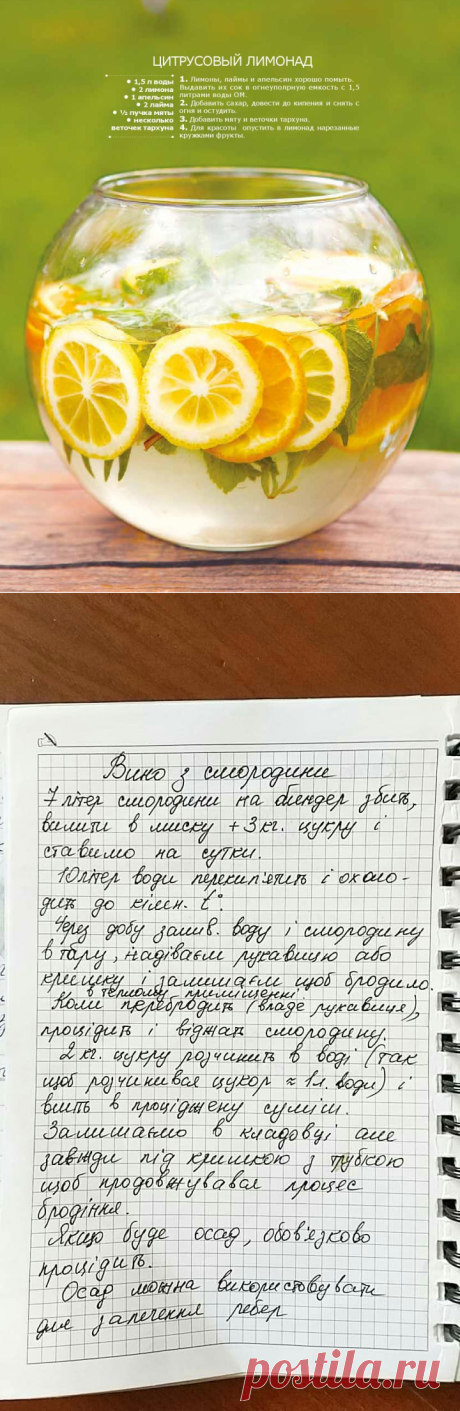 ЦИТРУСОВЫЙ ЛИМОНАД
• 1,5 л воды
• 2 лимона
• 1 апельсин
• 2 лайма
• ½ пучка мяты
• несколько
веточек тархуна
1. Лимоны, лаймы и апельсин хорошо помыть.
Выдавить их сок в огнеупорную емкость с 1,5
литрами воды ОМ.
2. Добавить сахар, довести до кипения и снять с
огня и остудить.
3. Добавить мяту и веточки тархуна.
4. Для красоты опустить в лимонад нарезанные
кружками фрукты.
Вино з смородини
7 літер смородини на блндер збить,
вилити в миску + 3 кг. цукру і
ставимо на сутки.
10 літер води перекип'ятить і охоло-
дить до кімн. t°.
Через добу залив. воду і смородину
в тару, надіваєм рукавицю або
кришку і залишаєм щоб бродило.
в теплому приміщенні
Коли перебродить (впаде рукавиця),
процідить і віджать смородину.
2 кг. цукру розчинить в воді (так
щоб розчинився цукор ≈ 1 л. води) і
влить в проціджену суміш.
Залишаємо в кладовці але
завжди під кришкою з трубкою
щоб продовжувався процес
бродіння.
Якщо буде осад, обов'язково
процідить.
Осад можна використовувати
для запечення ребер
postila.ru